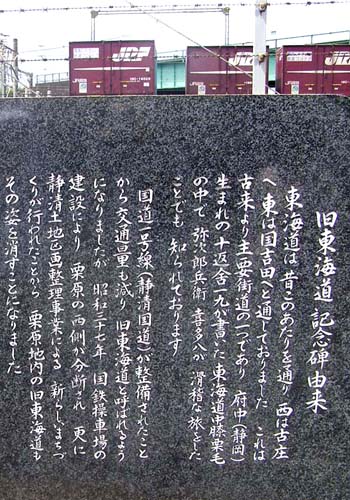 JRF
JRF
JRF
旧東海道記念碑由来
東海道は昔このあたりを通り 西は古庄
へ 東は国吉田へと通じておりました これは
古来より主要街道の一つであり 府中(静岡)
生まれの十返舎一九が書いた東海道中膝栗毛
の中で 弥次郎兵衛 喜多八が滑稽な旅をした
ことでも知られております
国道一号線(静清国道)が整備されたこと
から交通量も減り 旧東海道と呼ばれるよう
になりましたが 昭和三十七年 国鉄操車場の
建設により 栗原の西側が分断され 更に
静清土地区画整理事業による 新らしいまちづ
くりが行われたことから 栗原地内の旧東海道も
その姿を消すことになりました